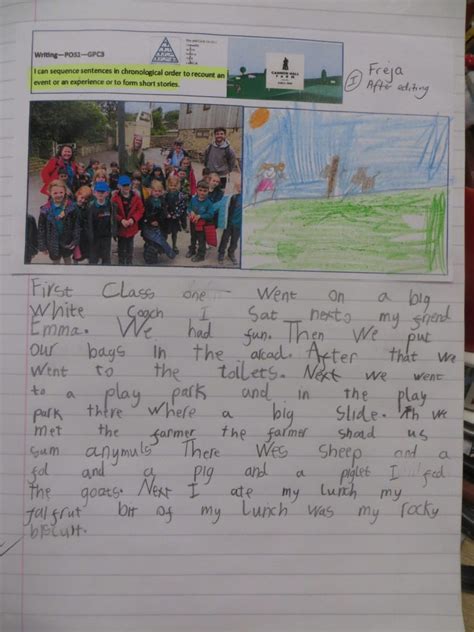 Writing—POS1—GPC3
I can sequence sentences in chronological order to recount an
event or an experience or to form short stories.
CANNON HALL
FARM
I
Freja
After editing
First Class one went on a big
White Coach I Sat nexto my friend
Emma. We had fun. Then We put
our bags in the arcad. After that we
went to the toilets. Next we went
to a play park and in the play
park there where a big Slide. we
met the farmer the farmer shoad us
sum anymuls There Wes sheep and a
and a pig and a piglet I feed
the goats. Next I ate my lunch my
bit of my lunch was my rocky
biscuit.